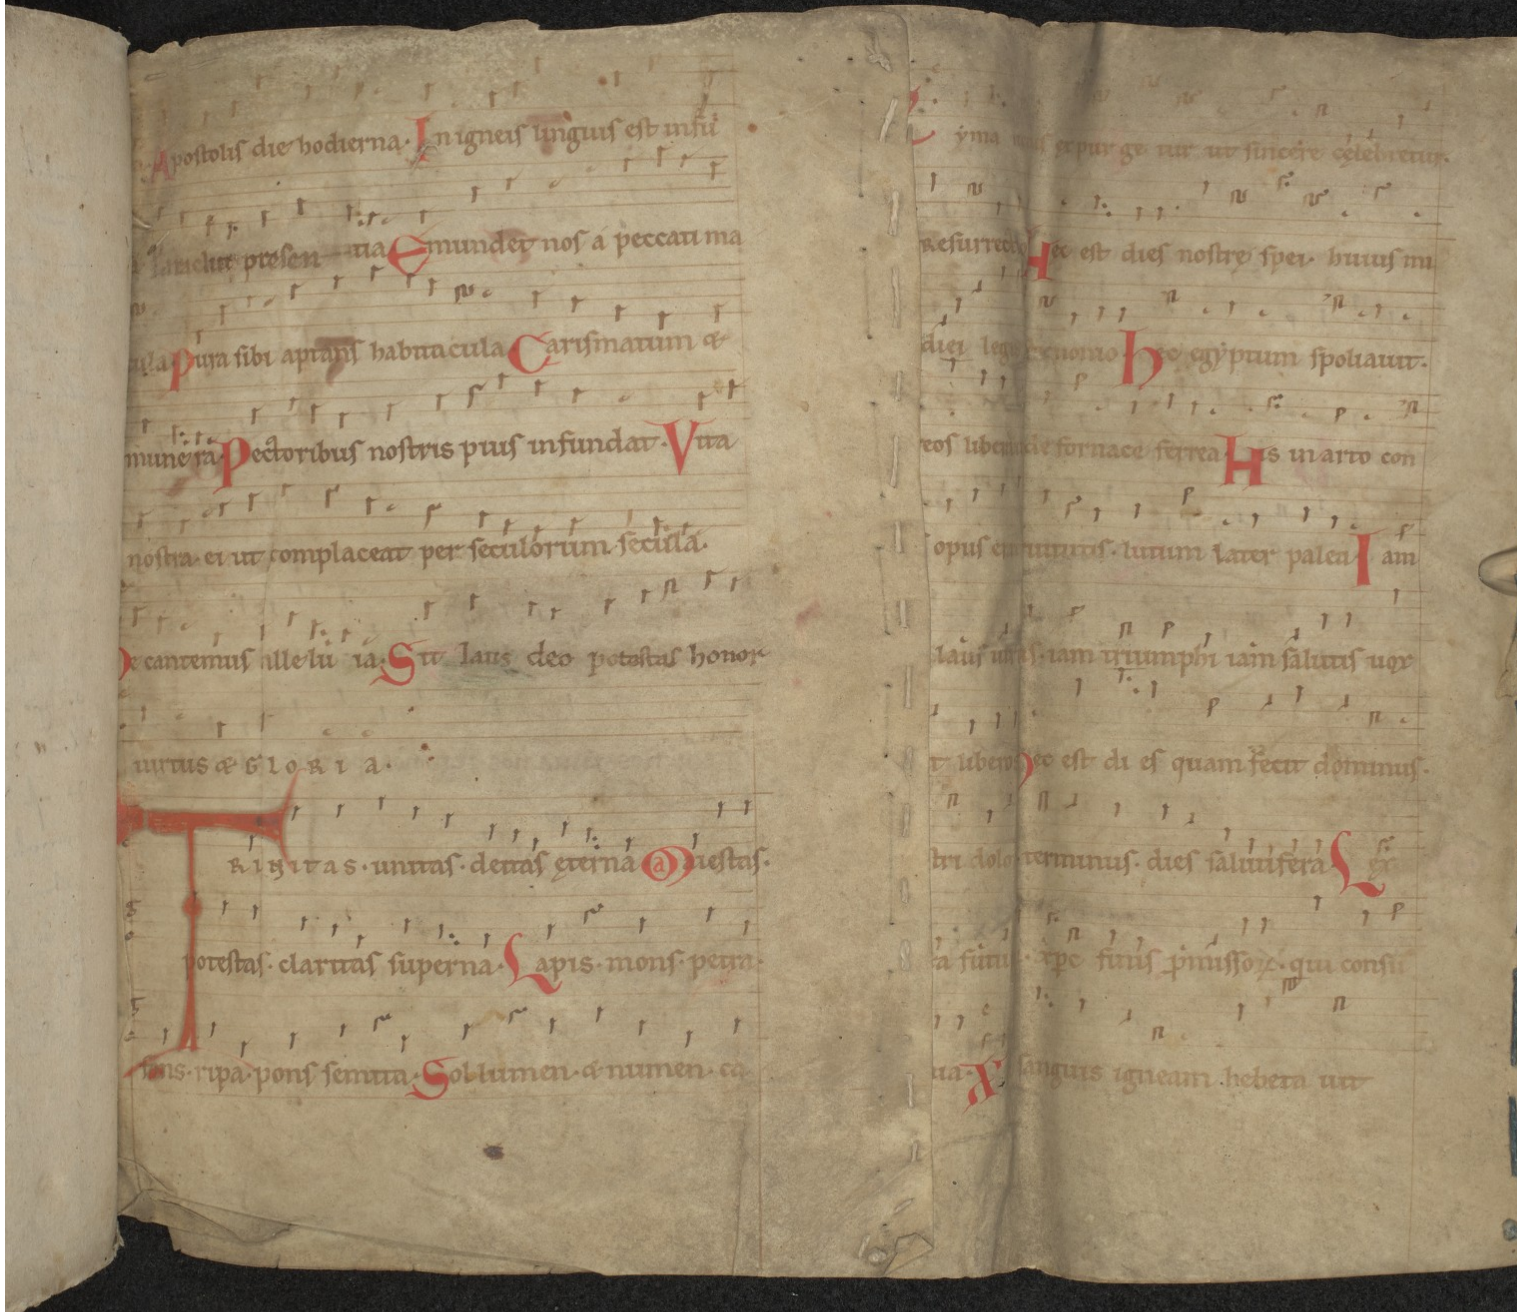 Apostolis die hodierna. In igneis linguis est insu
presen tia Emundet nos a peccati ma
cula Pura sibi aptans habitacula Carismatum &
munera Pectoribus nostris pius infundat. Vita
nostra. ei ut complaceat per seculorum secula.
cantemus alleluia Sit laus deo potestas honor
uirtus & GLORIA.
TRINITAS. unitas. deitas eterna Maiestas.
potestas. claritas superna. Lapis. mons. petra.
fons. ripa. pons semita. Sol lumen. & numen. ca
yma expurge tur ut sincere celebretur.
Resurrectio Hec est dies nostre spei. huius mi
diei legis Hec egyptum spoliauit.
reos de fornace ferrea His in arto con
opus erat lutum later palea Iam
laus iam triumphi iam salutis uox
t libera Hec est di es quam fecit dominus.
stri dolo terminus. dies salutifera Lex
ra futuri. xpc finis promissorum. qui consu
ia. X sanguis igneam hebeta uit